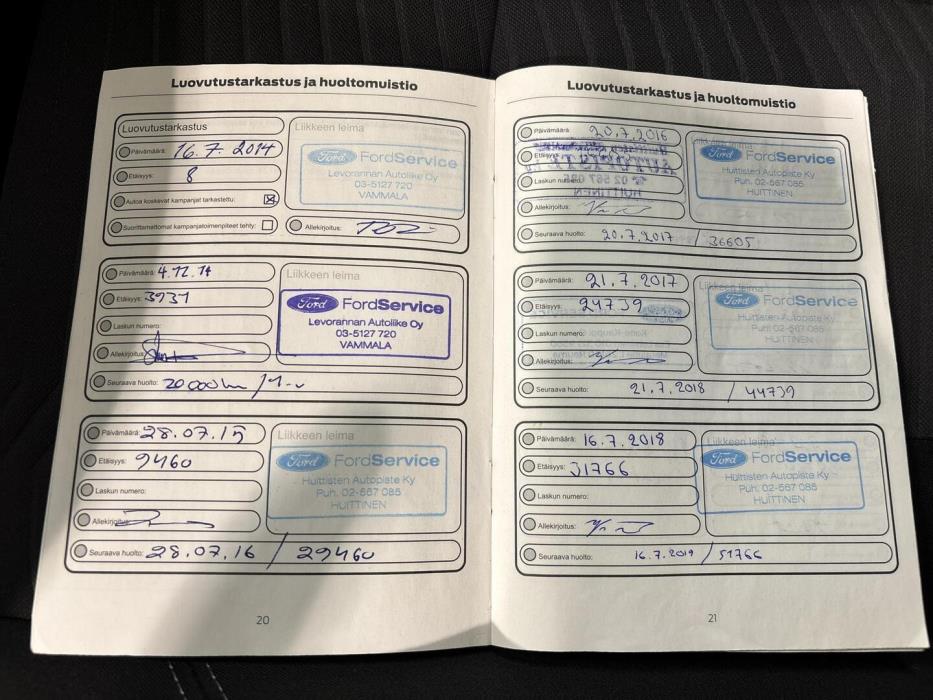 Luovutustarkastus ja huoltomuistio
Luovutustarkastus
Päivämäärä: 16.7. 2014
Etäisyys: 8
Autoa koskevat kampanjat tarkastettu:
Suorittamattomat kampanjatoimenpiteet tehty:
Liikkeen leima
Ford FordService
Levorannan Autoliike Oy
03-5127 720
VAMMALA
Allekirjoitus:
Päivämäärä: 4.12.14
Etäisyys: 3931
Laskun numero:
Allekirjoitus:
Liikkeen leima
Ford FordService
Levorannan Autoliike Oy
03-5127 720
VAMMALA
Seuraava huolto: 20 000 km /
Päivämäärä: 28.07.15
Etäisyys: 9460
Laskun numero:
Allekirjoitus:
Liikkeen leima
Ford FordService
Huittisten Autopiste Ky
Puh. 02-567 085
HUITTINEN
Seuraava huolto: 28.07.16 / 29460
20
Luovutustarkastus ja huoltomuistio
Päivämäärä: 20.7.2016
Etäisyys:
Laskun numero:
Allekirjoitus:
Liikkeen leima
Ford FordService
Huittisten Autopiste Ky
Puh. 02-567 085
HUITTINEN
Seuraava huolto: 20.7.2017 / 36605
Päivämäärä: 21.7.2017
Etäisyys: 24739
Laskun numero:
Allekirjoitus:
Liikkeen leima
Ford FordService
Huittisten Autopiste Ky
Puh. 02-567 085
HUITTINEN
Seuraava huolto: 21.7.2018 / 44739
Päivämäärä: 16.7.2018
Etäisyys: 31766
Laskun numero:
Allekirjoitus:
Liikkeen leima
Ford FordService
Huittisten Autopiste Ky
Puh. 02-567 085
HUITTINEN
Seuraava huolto: 16.7.2019 / 51766
21